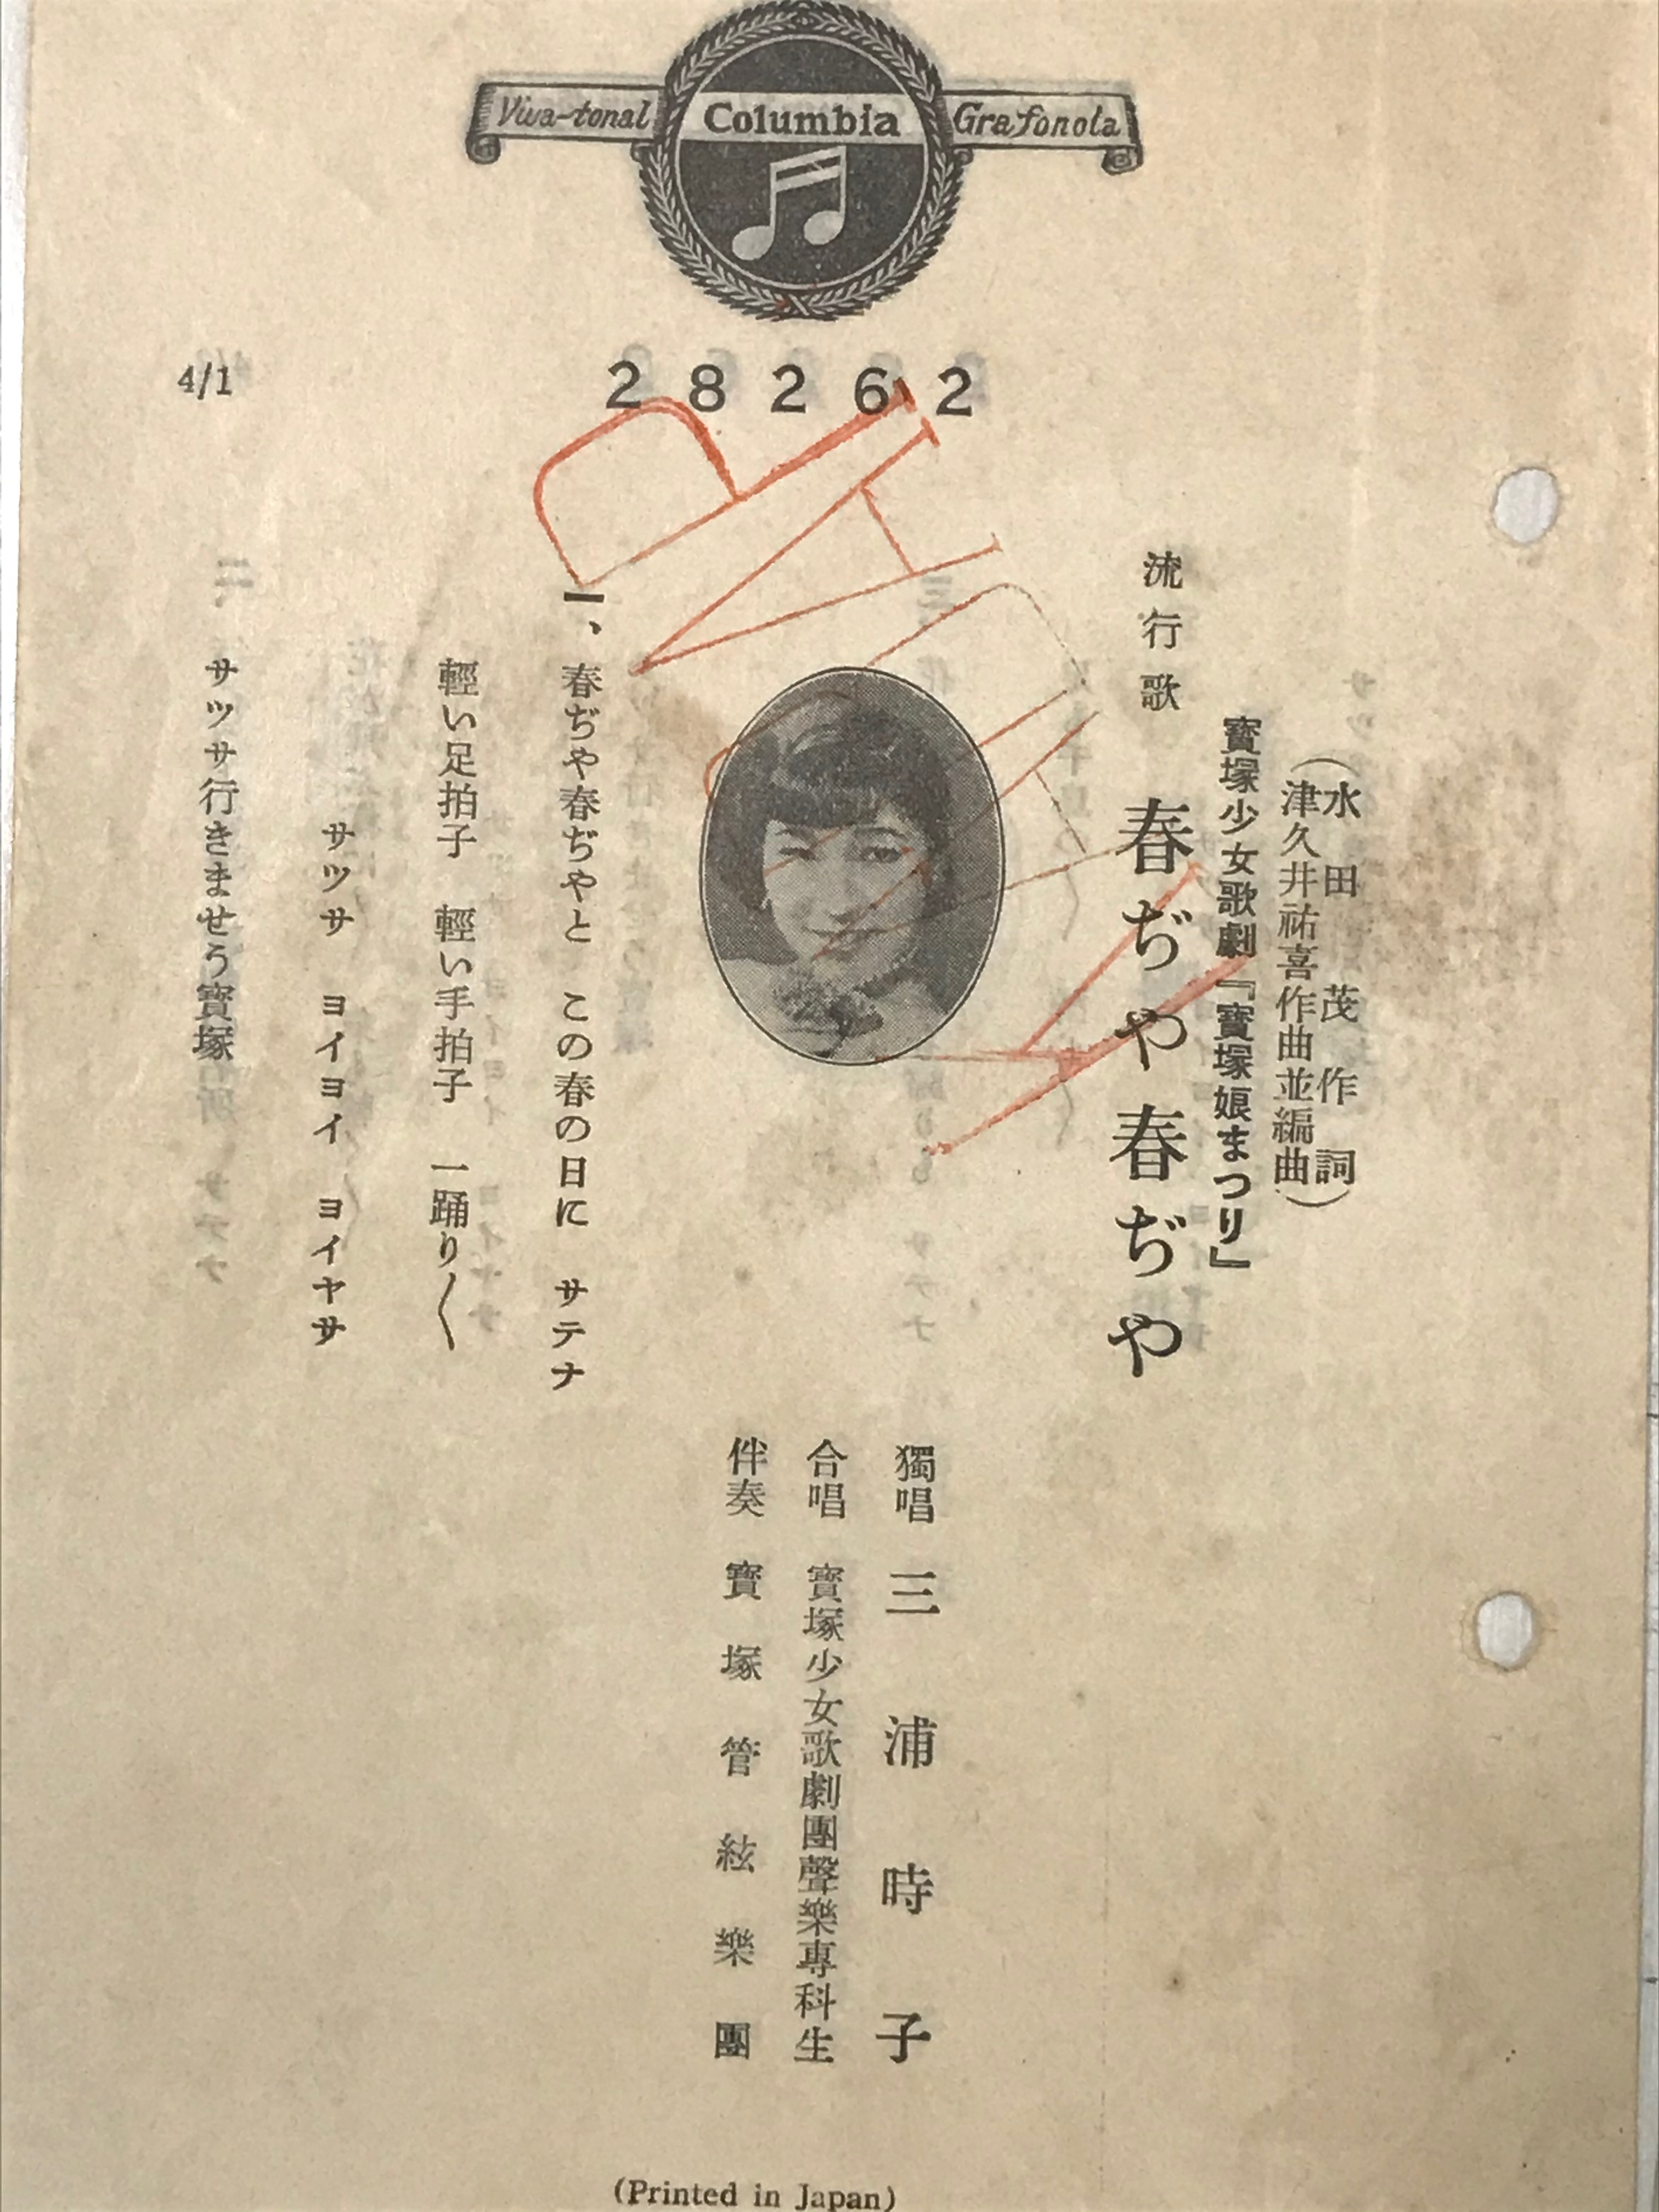 Viva-tonal Columbia Grafonola
28262
4/1
(水田茂作詞
津久井祐喜作曲並編曲)
寶塚少女歌劇『寶塚娘まつり』
流行歌 春ぢや春ぢや
獨唱 三浦時子
合唱 寶塚少女歌劇團聲樂專科生
伴奏 寶塚管絃樂團
一、春ぢや春ぢやと この春の日に サテナ
輕い足拍子 輕い手拍子 一踊り〱
サツサ ヨイヨイ ヨイヤサ
サツサ行きませう寶塚
(Printed in Japan)